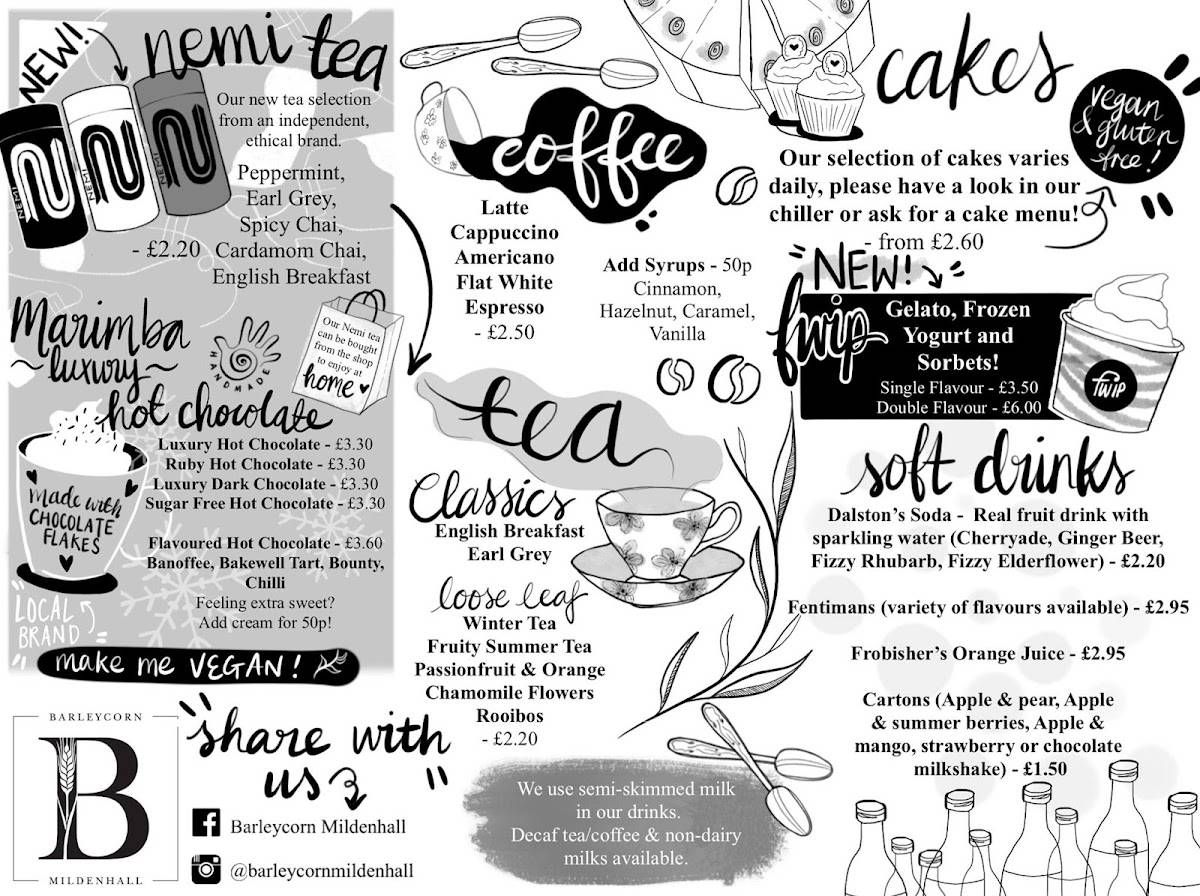 NEW!
nemi tea
NEMI
NEMI
NEMI
Our new tea selection
from an independent,
ethical brand.
Peppermint,
Earl Grey,
Spicy Chai,
Cardamom Chai,
English Breakfast
- £2.20
Marimba
~luxury~
hot chocolate
HANDMADE
Our Nemi tea
can be bought
from the shop
to enjoy at
home
Luxury Hot Chocolate - £3.30
Ruby Hot Chocolate - £3.30
Luxury Dark Chocolate - £3.30
Sugar Free Hot Chocolate - £3.30
Flavoured Hot Chocolate - £3.60
Banoffee, Bakewell Tart, Bounty,
Chilli
Feeling extra sweet?
Add cream for 50p!
made with
CHOCOLATE
FLAKES
LOCAL
BRAND
make me VEGAN!
BARLEYCORN
B
MILDENHALL
"share with
us"
Barleycorn Mildenhall
@barleycornmildenhall
coffee
Latte
Cappuccino
Americano
Flat White
Espresso
- £2.50
Add Syrups - 50p
Cinnamon,
Hazelnut, Caramel,
Vanilla
tea
Classics
English Breakfast
Earl Grey
loose leaf
Winter Tea
Fruity Summer Tea
Passionfruit & Orange
Chamomile Flowers
Rooibos
- £2.20
We use semi-skimmed milk
in our drinks.
Decaf tea/coffee & non-dairy
milks available.
cakes
vegan
& gluten
free!
Our selection of cakes varies
daily, please have a look in our
chiller or ask for a cake menu!
- from £2.60
"NEW!"
fwip
Gelato, Frozen
Yogurt and
Sorbets!
Single Flavour - £3.50
Double Flavour - £6.00
fwip
soft drinks
Dalston's Soda - Real fruit drink with
sparkling water (Cherryade, Ginger Beer,
Fizzy Rhubarb, Fizzy Elderflower) - £2.20
Fentimans (variety of flavours available) - £2.95
Frobisher's Orange Juice - £2.95
Cartons (Apple & pear, Apple
& summer berries, Apple &
mango, strawberry or chocolate
milkshake) - £1.50